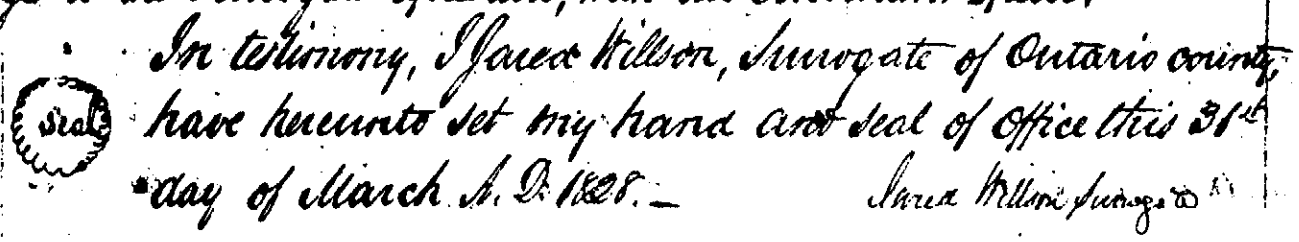 In testimony, I Jared Willson, Surrogate of Ontario county,
Seal have hereunto set my hand and seal of office this 31st
day of March A. D. 1828. —
Jared Willson Surrogate